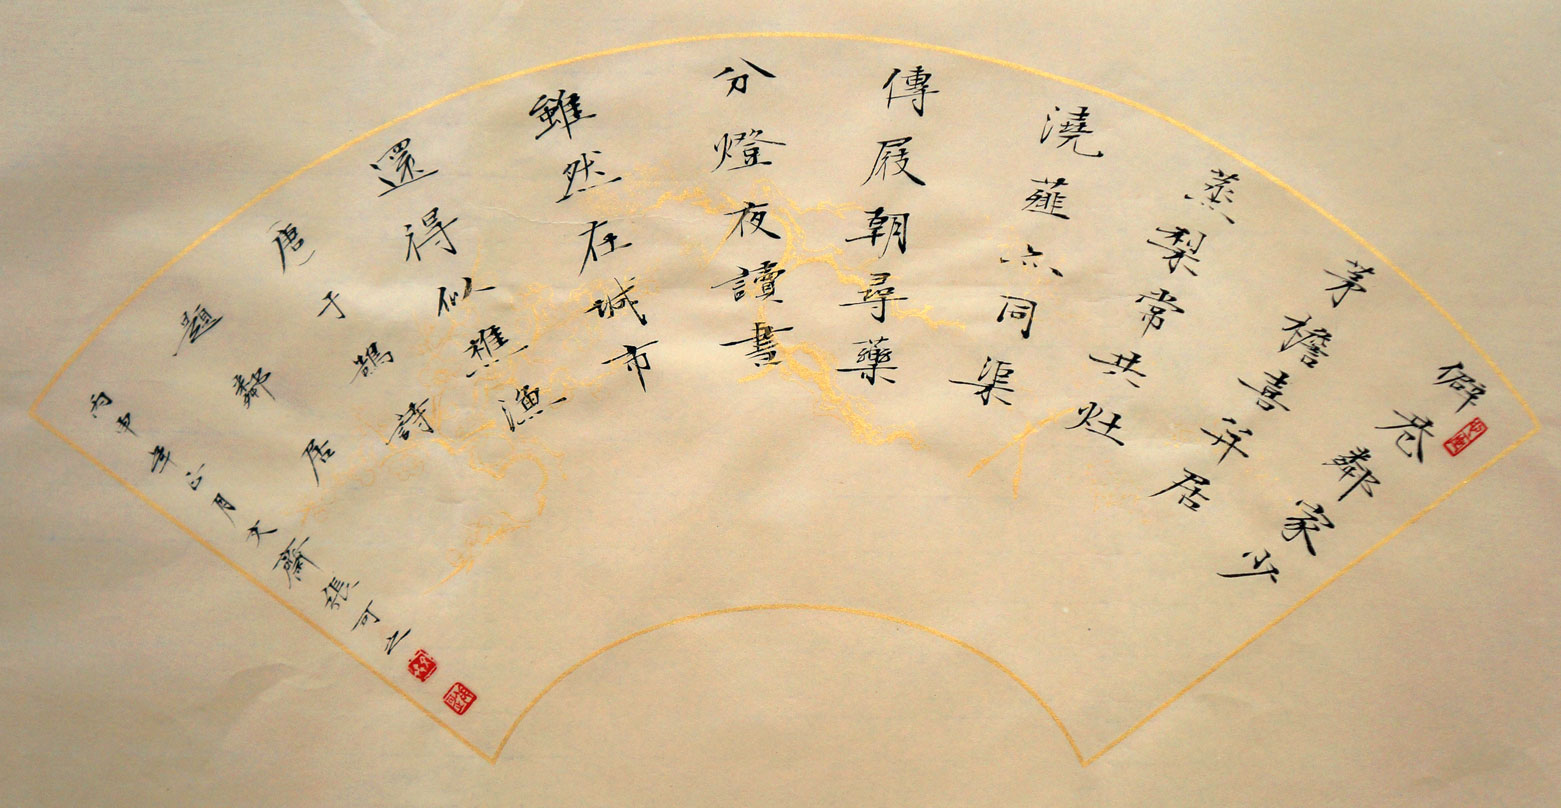 僻巷鄰家少
茅檐喜并居
蒸梨常共灶
澆薤亦同渠
傳屐朝尋藥
分燈夜讀書
雖然在城市
還得似樵漁
唐于鵠詩
題鄰居
丙申年六月文齋張可之